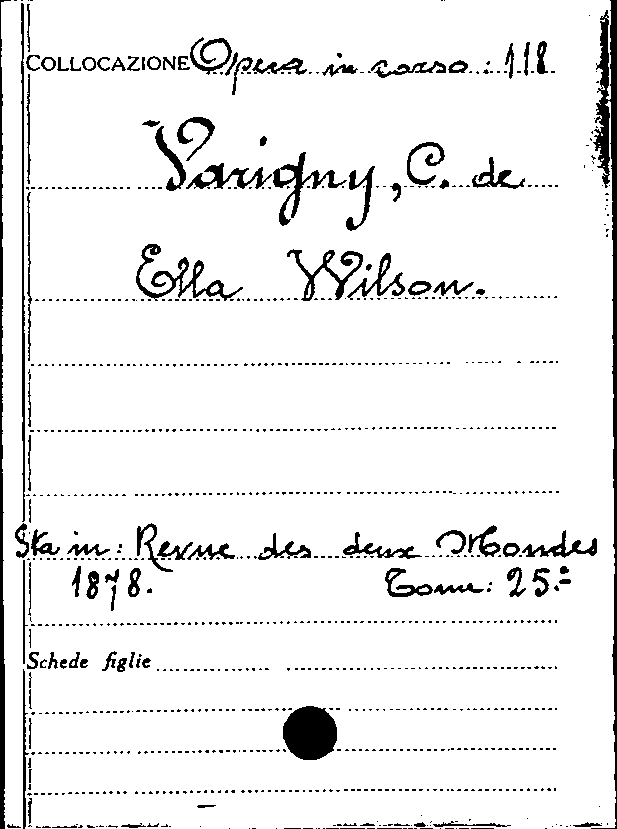 COLLOCAZIONE Opera in corso: 118
Varigny, C. de
Ella Wilson.
Sta in: Revue des deux Mondes
1878. Tome: 25.º
Schede figlie